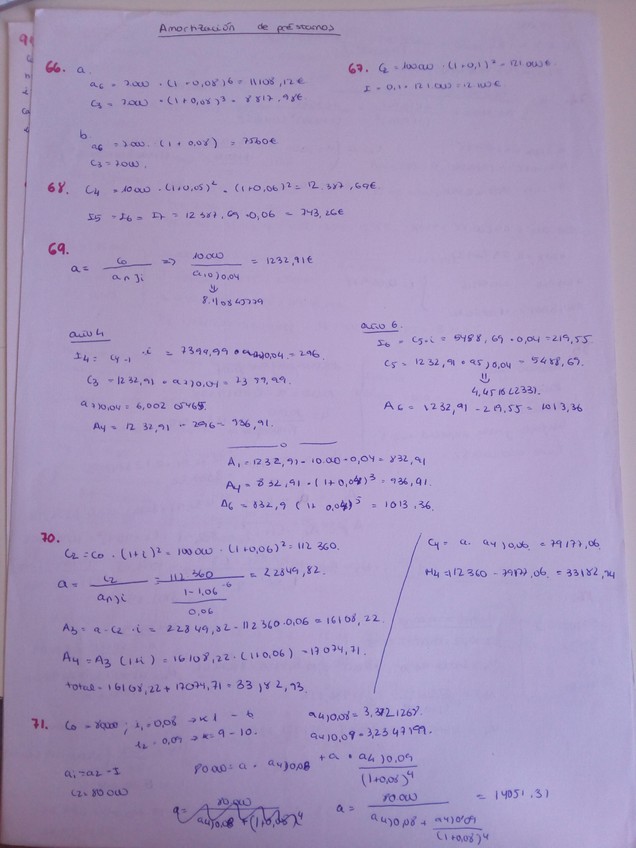 Amortización de préstamos
66. a.
a6 = 7000 · (1+0,08)^6 = 11108,12€
C3 = 7000 · (1+0,08)^3 = 8817,98€
b.
a6 = 7000 · (1+0,08) = 7560€
C3 = 7000.
67. C2 = 100000 · (1+0,1)^2 = 121000€
I = 0,1 · 121000 = 12100€
68. C4 = 10000 · (1+0,05)^2 · (1+0,06)^2 = 12.387,69€
I5 = I6 = I7 = 12387,69 · 0,06 = 743,26€
69.
a = C0 / an⌉i => 10000 / a10⌉0,04 = 1232,91€
⇓
año 4
I4 = · i = 7399,99 · 0,04 = 296
C3 = 1232,91 · a7⌉0,04 = 7399,99.
a7⌉0,04 = 6,00205465
A4 = 1232,91 - 296 = 936,91.
año 6.
I6 = C5·i = 5488,69 · 0,04 = 219,55
C5 = 1232,91 · a5⌉0,04 = 5488,69.
⇓
A6 = 1232,91 - 219,55 = 1013,36
A1 = 1232,91 - 10.000 · 0,04 = 832,91
A4 = 832,91 · (1+0,04)^3 = 936,91.
A6 = 832,9 (1+ 0,04)^5 = 1013,36.
70.
C2 = C0 · (1+i)^2 = 100000 · (1+0,06)^2 = 112360.
a = C2 / an⌉i = 112360 / ((1-1,06^-6) / 0,06) = 22849,82.
A3 = a - C2 · i = 22849,82 - 112360 · 0,06 = 16108,22.
A4 = A3 (1+i) = 16108,22 · (1+0,06) = 17074,71.
total = 16108,22 + 17074,71 = 33182,93.
C4 = a · a4⌉0,06 = 79177,06
M4 = 112360 - 79177,06 = 33182,94
71. C0 = 80000 ; i1 = 0,08 →
i2 = 0,09 → k= 9 - 10.
a4⌉0,08 = 3,3121268.
a4⌉0,09 = 3,2397199.
a1 = a2 = I
C2 = 80000
80000 = a · a4⌉0,08 + a · a4⌉0,09 / (1+0,08)^4
a = 80000 / (a4⌉0,08 + a4⌉0,09 / (1+0,08)^4) = 14051.31